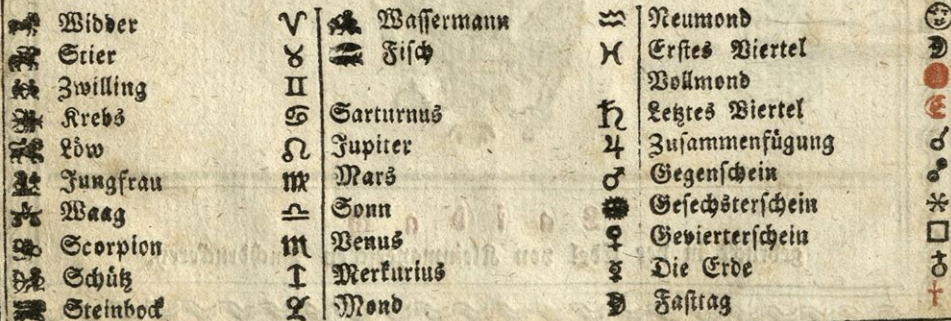 Widder ♈
Stier ♉
Zwilling ♊
Krebs ♋
Löw ♌
Jungfrau ♍
Waag ♎
Scorpion ♏
Schütz ♐
Steinbock ♑
Wassermann ♒
Fisch ♓
Sarturnus ♄
Jupiter ♃
Mars ♂
Sonn
Venus ♀
Merkurius ☿
Mond
Neumond
Erstes Viertel
Vollmond
Letztes Viertel
Zusammenfügung ☌
Gegenschein ☍
Gesechsterschein ⚹
Gevierterschein □
Die Erde ♁
Fasttag †